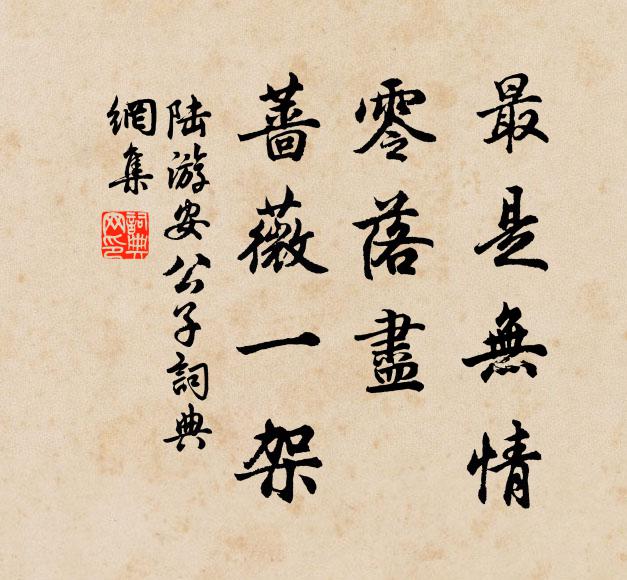 最是無情
零落盡
薔薇一架
陸游安公子詞典
網集
詞典
网印